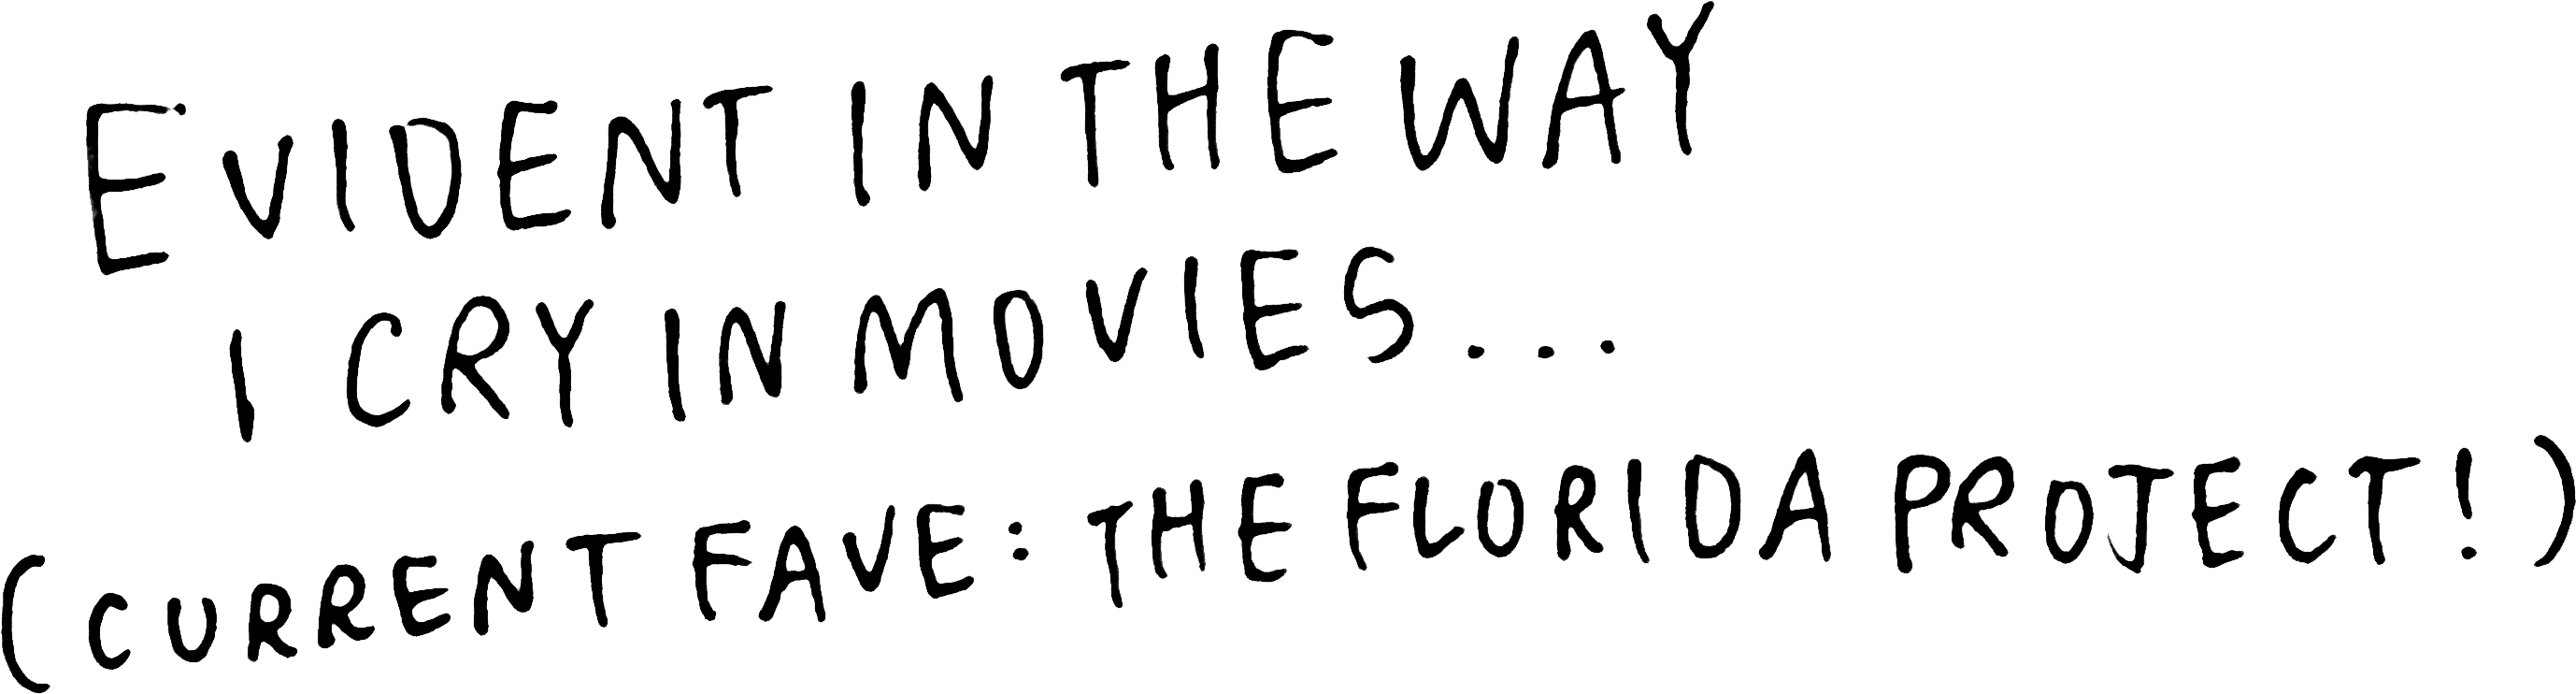 EVIDENT IN THE WAY
I CRY IN MOVIES...
(CURRENT FAVE: THE FLORIDA PROJECT!)